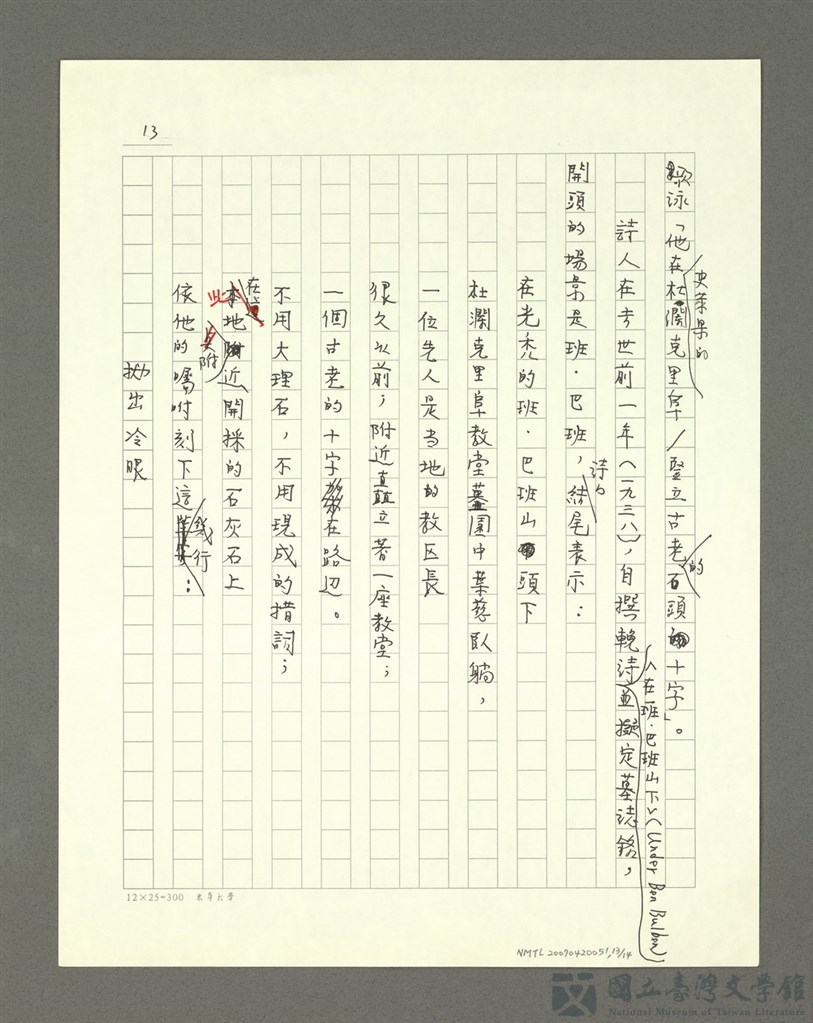 13
歌詠「他在史萊果的杜瀾克里阜／豎立古老的石頭十字」。
詩人在考世前一年(一九三八)，自撰輓詩〈在班．巴班山下〉(Under Ben Bulben)並擬定墓誌銘，
開頭的場景是班．巴班，詩的結尾表示：
在光禿的班．巴班山頭下
杜瀾克里阜教堂墓園中葉慈臥躺，
一位先人是當地的教区長
很久以前；附近矗立著一座教堂；
一個古老的十字在路边。
不用大理石，不用現成的措詞；
在附近開採的石灰石上
依他的囑咐刻下這幾行：
拋出冷眼
12×25=300 東华大学
NMTL 20090420051, 13/14
國立臺灣文學館
National Museum of Taiwan Literature